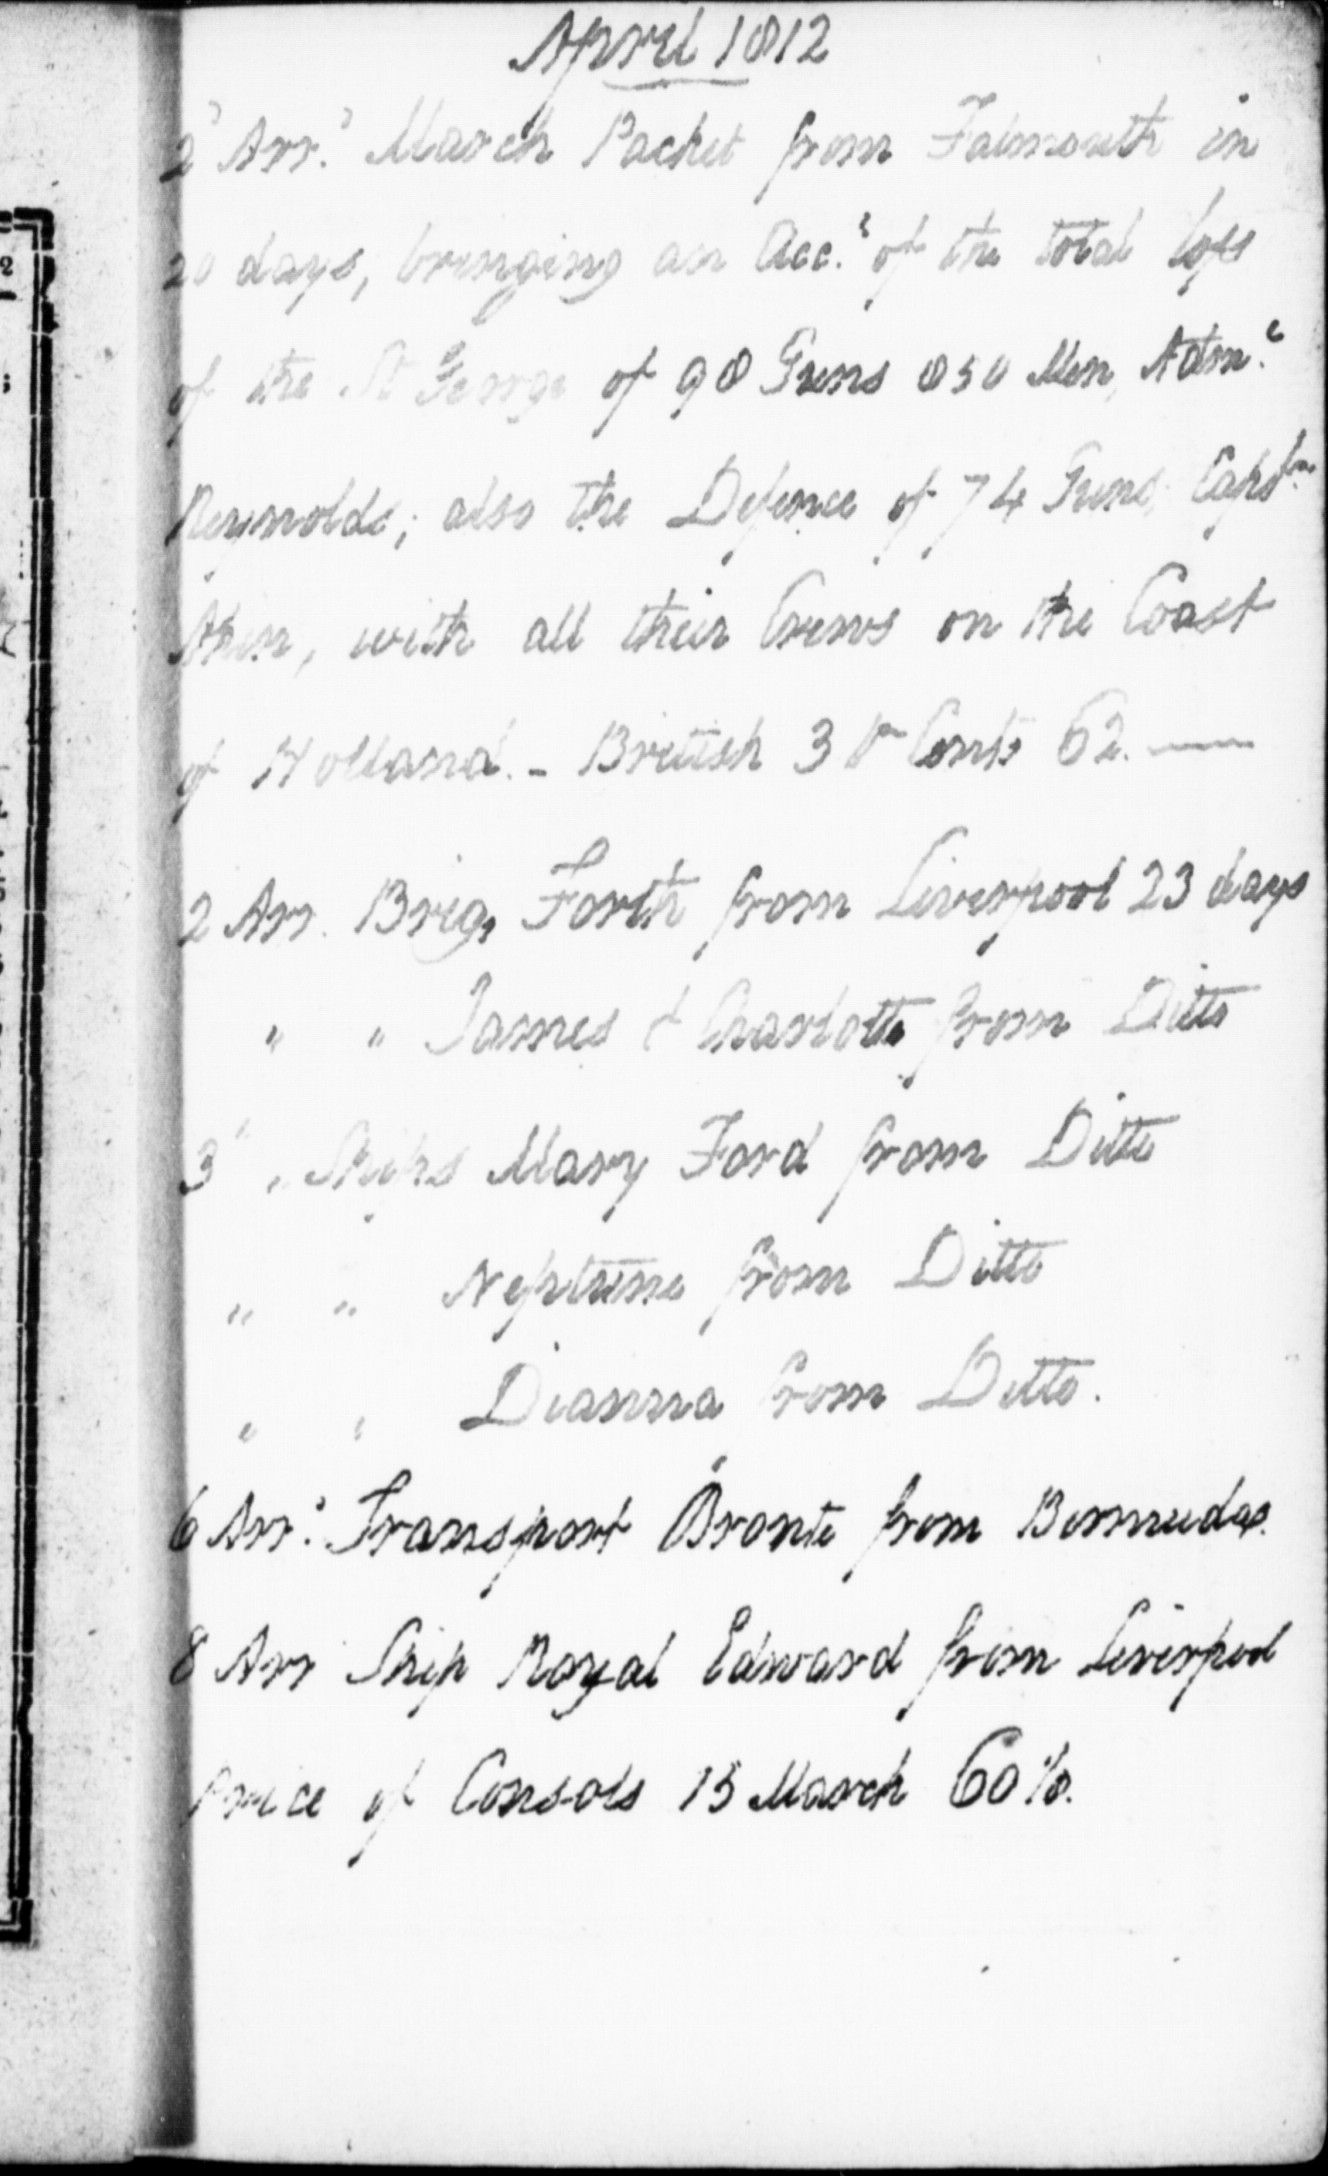 April 1812
2 Arr.d March Packet from Falmouth in
20 days, bringing an Acc.t of the total loss
of the St George of 98 Guns 850 Men, Adm.l
Reynolds; also the Defence of 74 Guns, Capt.n
Atkin, with all their Crews on the Coast
of Holland. - British 3 Pr Cents 62. —
2 Arr. Brig, Forth from Liverpool 23 days
" " James & Charlotte from Ditto
3 " Ships Mary Ford from Ditto
" " Neptune from Ditto
" " Dianna from Ditto.
6 Arr.d Transport Bronte from Bermudas.
8 Arr Ship Royal Edward from Liverpool
Price of Consols 15 March 60 %.